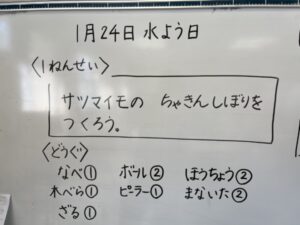 1月24日 水よう日
〈1ねんせい〉
サツマイモの ちゃきんしぼりを
つくろう。
〈どうぐ〉
なべ① ボール② ほうちょう②
木べら① ピーラー① まないた②
ざる①